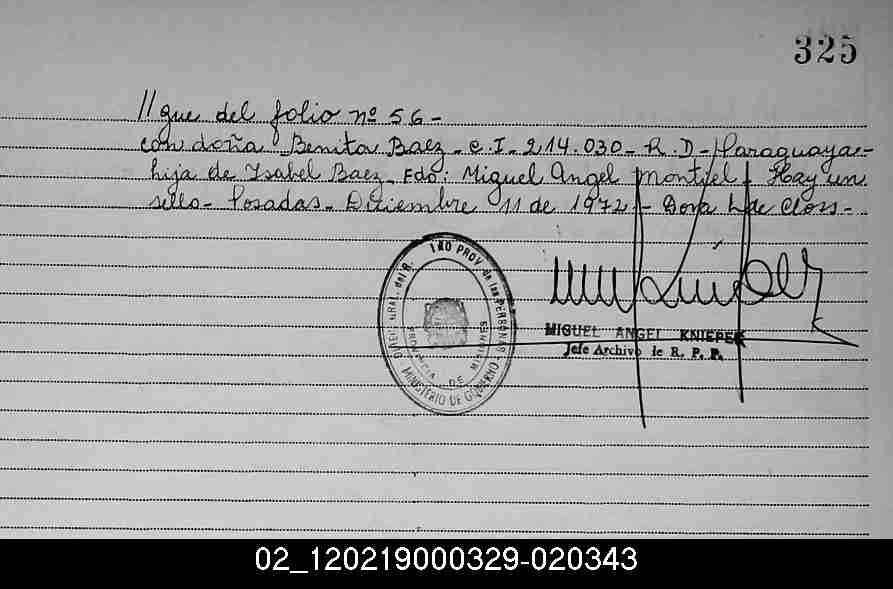 325
//gue del folio nº 56-
con doña Benita Baez - C.I. 214.030 - R.D - Paraguaya-
hija de Isabel Baez - Fdo: Miguel Angel Montiel - Hay un
sello - Posadas - Diciembre 11 de 1972 - Dora L. de Closs -
DIREC. GRAL. del R. PROV. de las PERSONAS
PROVINCIA DE MISIONES
MINISTERIO DE GOBIERNO
MIGUEL ANGEL KNIEPER
Jefe Archivo de R. P. P.
02_120219000329-020343